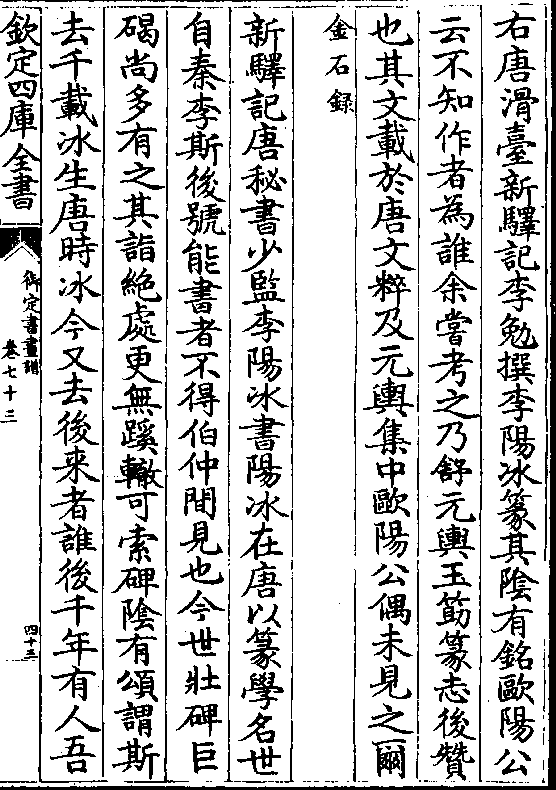 右唐滑臺新驛記李勉撰李陽冰篆其陰有銘歐陽公
云不知作者為誰余嘗考之乃舒元輿玉筯篆志後贊
也其文載於唐文粹及元輿集中歐陽公偶未見之爾
金石録
新驛記唐秘書少監李陽冰書陽冰在唐以篆學名世
自秦李斯後號能書者不得伯仲間見也今世壯碑巨
碣尚多有之其詣絶處更無蹊轍可索碑陰有頌謂斯
去千載冰生唐時冰今又去後來者誰後千年有人吾
欽定四庫全書
御定書畫譜
卷七十三
四十三